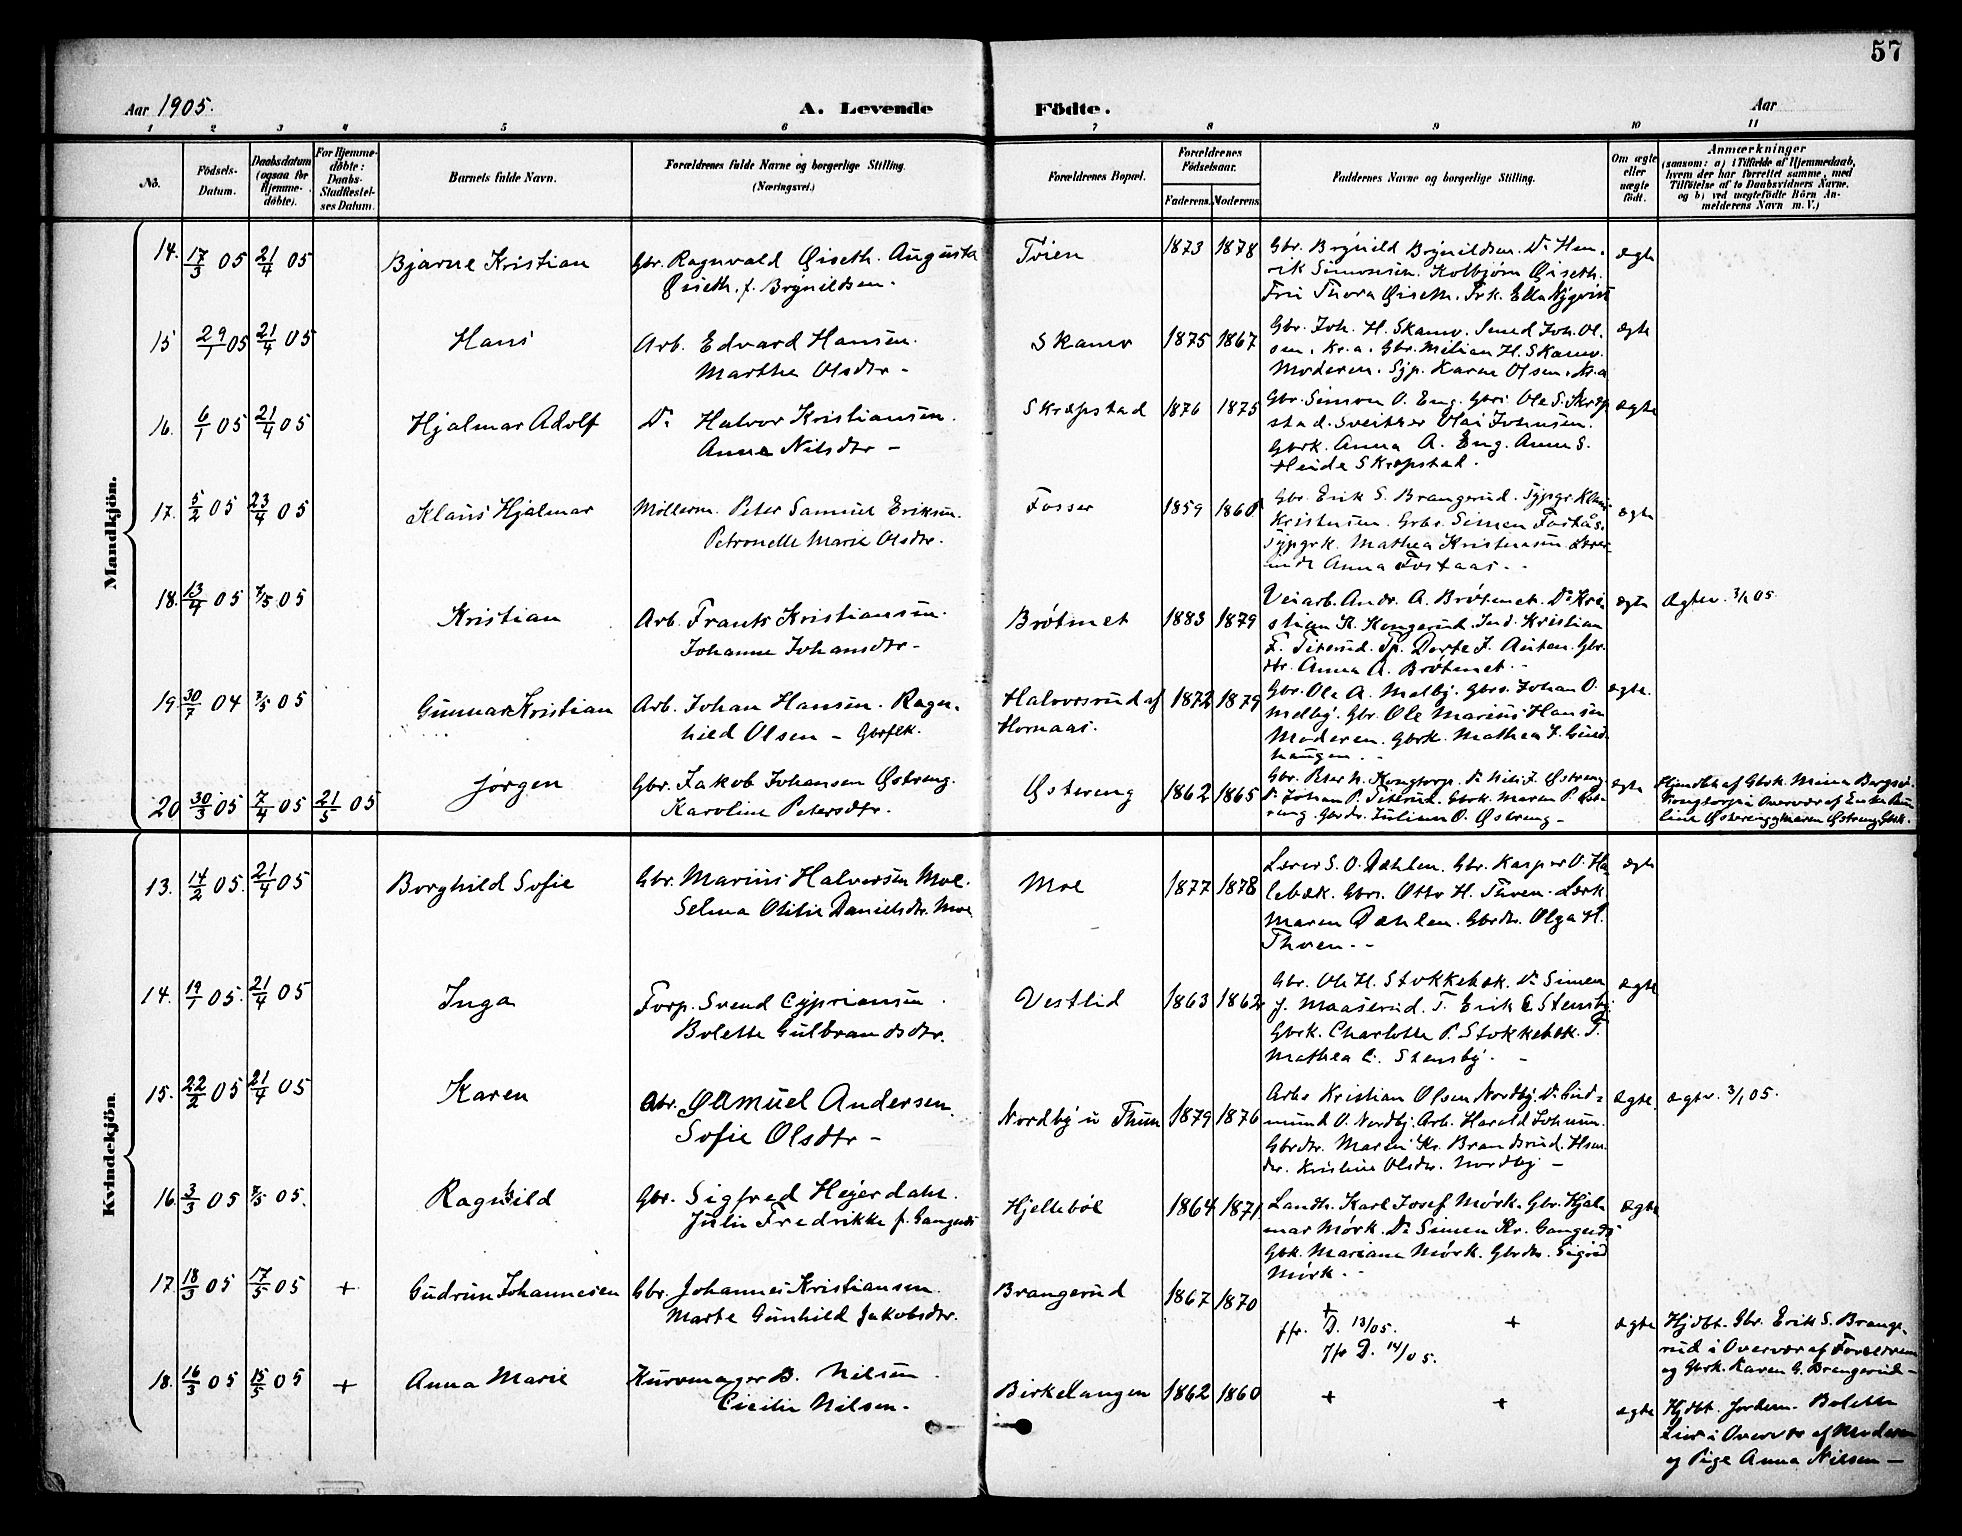 57
Aar 1905.
A. Levende Födte.
Aar
1 2 3 4 5 6 7 8 9 10 11
No.
Födsels-Datum.
Daabsdatum (ogsaa for Hjemme-döbte).
For Hjemme-döbte: Daabs-Stadfæstel-ses Datum.
Barnets fulde Navn.
Forældrenes fulde Navne og borgerlige Stilling.
(Næringsvei.)
Forældrenes Bopæl.
Forældrenes Födselsaar.
Faderens. Moderens.
Faddernes Navne og borgerlige Stilling.
Om ægte eller uægte födt.
Anmærkninger
(saasom: a) i Tilfælde af Hjemmedaab,
hvem der har forrettet samme, med
Tilföielse af to Daabsvidners Navne.
og b) ved uægtefödte Börn An-
melderens Navn m. V.)
Mandkjön.
14. 17/3 05 21/4 05 Bjarne Kristian
Gbr. Ragnvald Øiseth. Augusta
Øiseth. f. Brynildsen.
Toien 1873 1878
Gbr. Brynild Brynildsen. Do Hen-
rik Simonsen. Kolbjørn Øiseth.
Fru Thora Øiseth. Frk. Ella Nyqvist
ægte
15 29/1 05 21/4 05 Hans
Arb. Edvard Hansen.
Marthe Olsdtr -
Skamo 1875 1867
Gbr. Joh. H. Skamo. Smed Joh. Ol-
sen. Kr.a. Gbr. Milian H. Skamo.
Moderen. Syp. Karen Olsen. Kr.a
ægte
16. 6/1 05 21/4 05 Hjalmar Adolf
Do Halvor Kristiansen.
Anne Nilsdtr -
Skræpstad 1876 1875
Gbr. Simon O. Eng. Gbrs. Ole S. Skræp
stad. Sveitser Olai Johnsen.
Gbrk. Anna A. Eng. Anne S.
Skræpstad.
ægte
17. 5/2 05 23/4 05 Klaus Hjalmar
Møllerm. Peter Samuel Eriksen.
Petronelle Marie Olsdtr.
Fosser 1859 1860
Gbr. Erik S. Brangerud. Typgr
Kristensen. Gbr. Simen Fostås.
Typgrk. Mathea Kristensen. Lærer-
inde Anna Fostaas. -
ægte
18. 13/4 05 7/5 05 Kristian
Arb. Frants Kristiansen.
Johanne Johansdtr -
Brøtmet 1883 1879
Veiarb. Andr. A. Brøtmet. Do Kri-
stian K. Kongerud. Ind. Kristian
F. Titerud. Tp. Dorte J. Auten. Gbr.
dtr. Anna A. Brøtmet. -
ægte
Ægtev. 3/1 05.
19. 30/7 04 7/5 05 Gunnar Kristian
Arb. Johan Hansen. Ragn-
hild Olsen - Gbrflk.
Halvorsrud af
Hornaas.
1872 1879
Gbr. Ole A. Melby. Gbrs. Johan O.
Melby. Gbr. Ole Marius Hansen
Moderen. Gbrk. Mathea J.
haugen. -
ægte.
20 30/3 05 7/4 05 21/5 05 Jørgen
Gbr. Jakob Johansen Østreng.
Karoline Petersdtr.
Østereng 1862 1865
Gbr. Peter N. Kongtorp. Do Nils J. Østreng.
Do Johan P. Titerud. Gbrk. Maren P. Øst-
reng. Gbrdr. Juliane O. Østreng -
ægte
Hjmdbt af Gbrk. Mina
Kongtorp i Overvær af Enke
line Østereng og Maren Østreng Gbrk.
Kvindekjön.
13. 14/2 05. 21/4 05 Borghild Sofie
Gbr. Marius Halvorsen Moe.
Selma Otilie Danielsdtr. Moe
Moe 1877 1878
Lærer S. O. Dæhlen. Gbr. Kasper O. Ha
lebæk. Gbrs. Otto H. Thoen. Lærk
Maren Dæhlen. Gbrdtr. Olga H.
Thoen. -
ægte
14. 19/1 05. 21/4 05 Inga
Forp. Svend Cypriansen.
Bolette Gulbrandsdtr.
Vestlid 1863 1862
Gbr. Ole H. Stokkebæk. Do Simen
J. Maaserud. T. Erik C. Stensby
Gbrk. Charlotte P. Stokkebæk. T.
Mathea C. Stensby. -
ægte
15. 22/2 05 21/4 05 Karen
Gbr. Samuel Andersen.
Sofie Olsdtr -
Nordby u Thun 1879 1876
Arbs Kristian Olsen Nordby. Do Gud-
mund O. Nordby. Arb. Harald Johnsen.
Gbrdtr. Maren Kr. Brandsrud. Hsm.
dtr. Kristine Olsdtr. Nordby -
ægte.
ægtv. 3/1 05.
16. 3/3 05 7/5 05. Ragnhild
Gbr. Sigfred Heyerdahl.
Julie Fredrikke f. Gangnæs
Hjellebøl 1864 1871
Landh. Karl Josef Mørk. Gbr. Hjal-
mar Mørk. Do Simen Kr. Gangnæs
Gbk. Mariane Mørk. Gbrdtr. Sigrid
Mørk. -
Ægte
17. 18/3 05 17/5 05 + Gudrun Johannesen
Gbr. Johannes Kristiansen.
Marte Gunhild Jakobsdtr.
Brangerud 1867 1870
+ +
ffr. D. 13/05.
Jfr D. 14/05.
ægte
Hjdbt. Gbr. Erik S. Brange-
rud i Overvær af Forældrene
og Gbrk. Karen G. Brangerud -
18. 16/3 05 15/5 05 + Anna Marie
Kurvmager B. Nilsen.
Cicilie Nilsen -
Birkelangen 1862 1860
+ +
ægte
Hjdbt. Jordem. Bolette
Lier i Overvær af Moderen
og Pige Anna Nilsen -